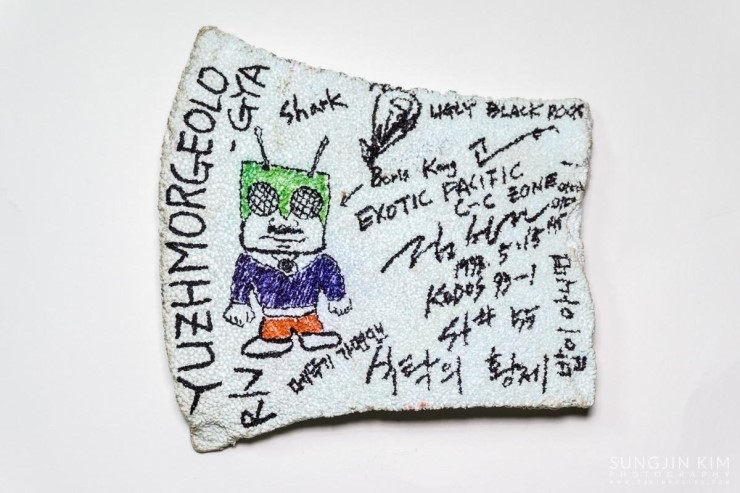 YUZHMORGEOLO
-GYA
R/V
Shark
UGLY BLACK ROCK
Boris Kong
EXOTIC PACIFIC
C-C ZONE
1993. 5. 15
KODOS 93-1
식탁의 황제
메뚜기 가면맨
SUNGJIN KIM
PHOTOGRAPHY